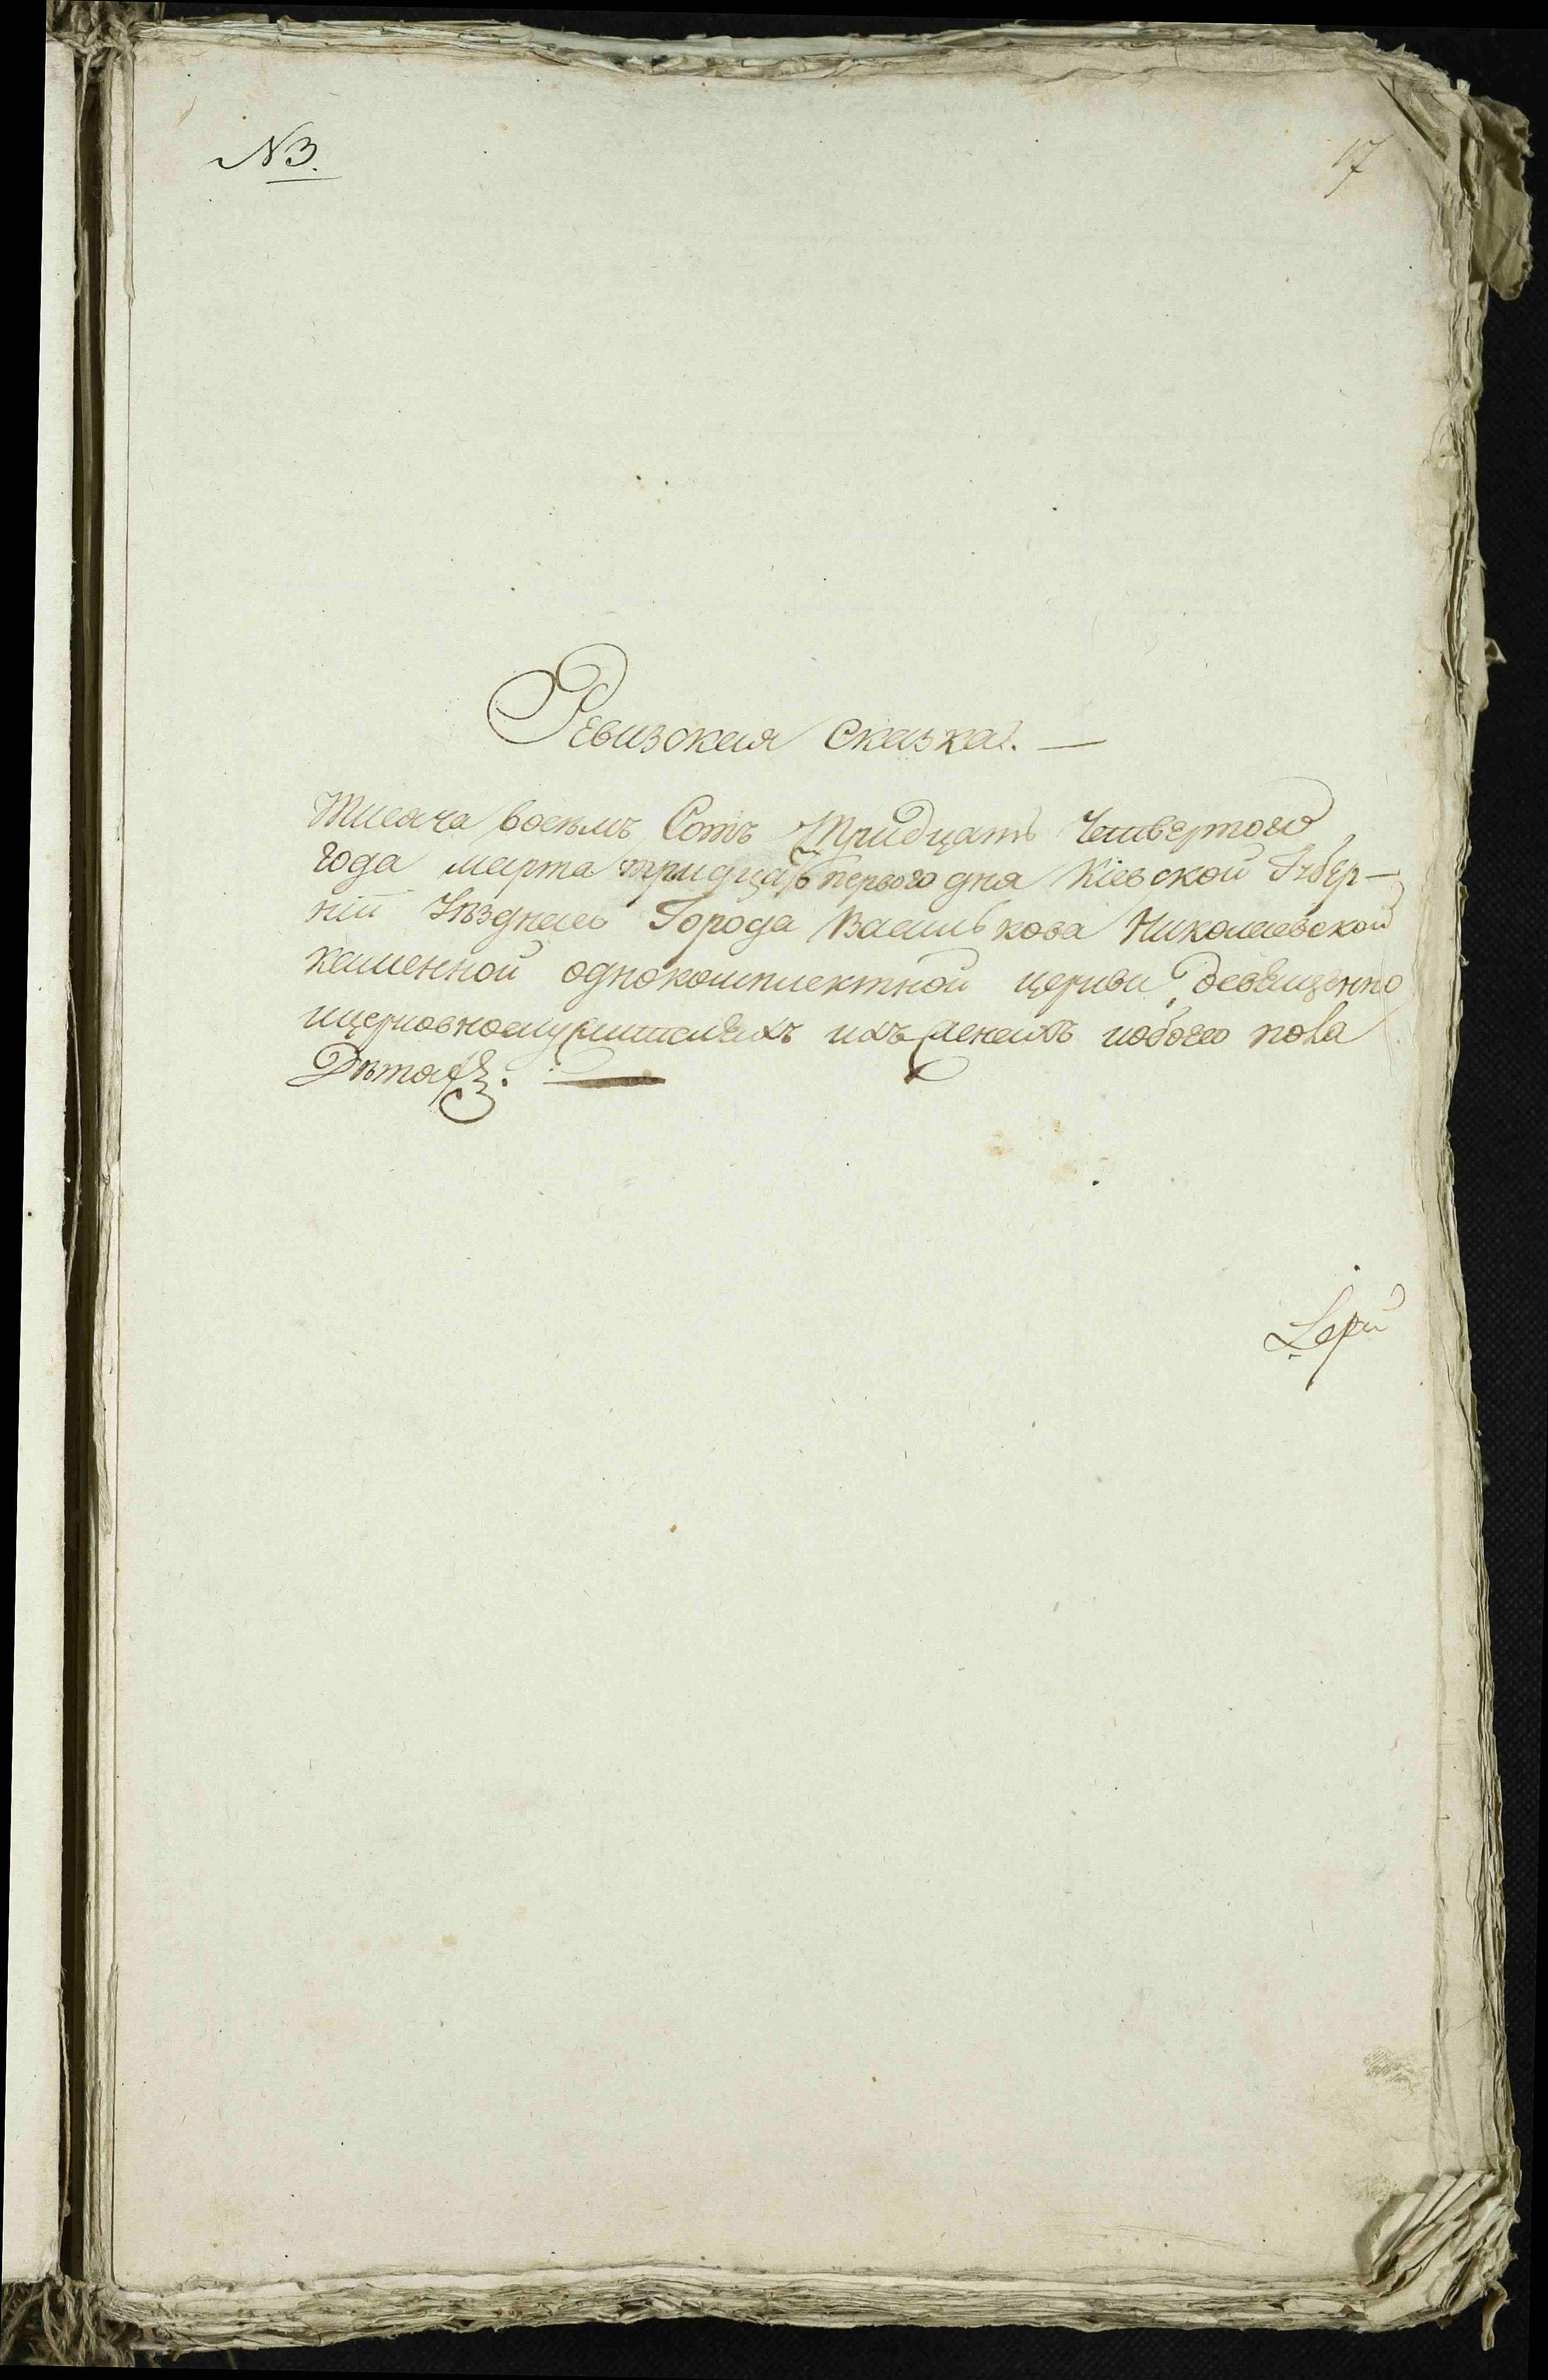 №3.
17
Ревизская сказка. —
Тисяча восемъ Сотъ Тридцать Четвертого
года марта тридцать первого дня Кіевской Губер-
ніи Уѣзднаго Города Василькова Николаевской
каменной однокомплектной церкви, освященно
ицерковнослужителяхъ ихъ женахъ иобоего пола
Дѣтахъ. —